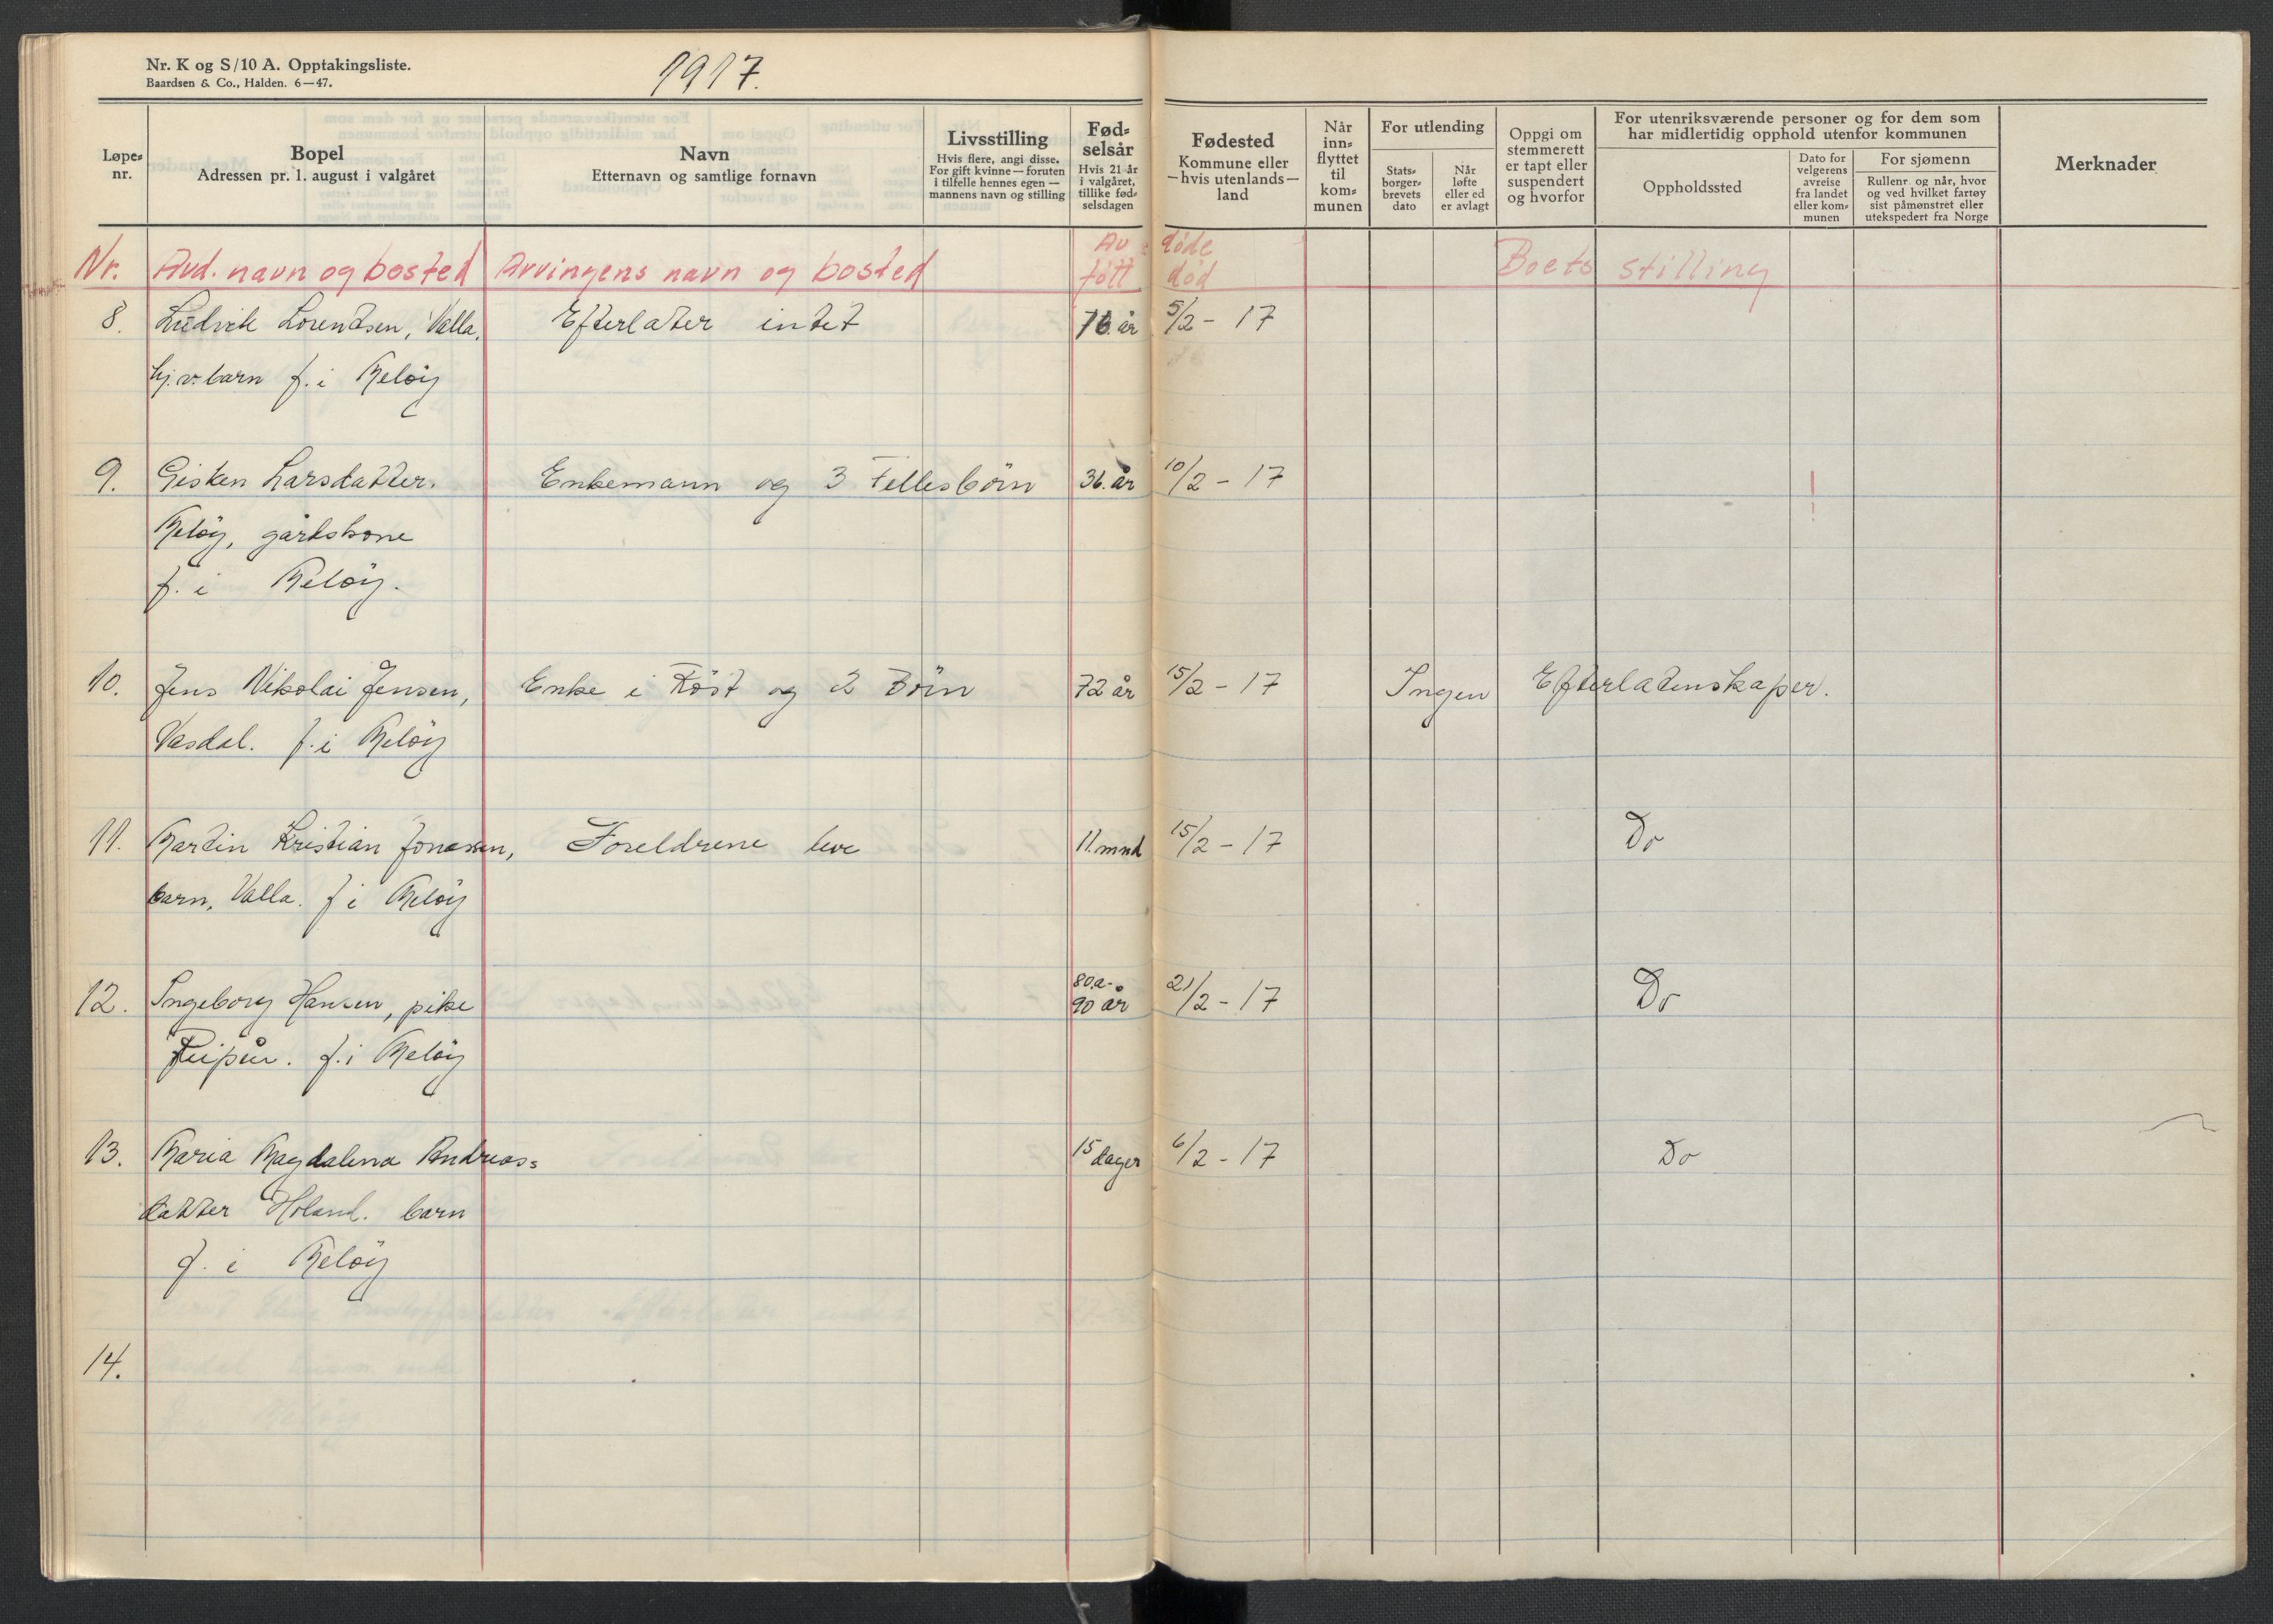 Nr. K og S/10 A. Opptakingsliste.
Baardsen & Co., Halden. 6—47.
1917.
Løpe-nr.
Bopel
Adressen pr. 1. august i valgåret
Navn
Etternavn og samtlige fornavn
Livsstilling
Hvis flere, angi disse.
For gift kvinne — foruten
i tilfelle hennes egen —
mannens navn og stilling
Fød-
selsår
Hvis 21 år
i valgåret,
tillike fød-
selsdagen
Fødested
Kommune eller
—hvis utenlands—
land
Når
inn-
flyttet
til
kom-
munen
For utlending
Stats-
borger-
brevets
dato
Når
løfte
eller ed
er avlagt
Oppgi om
stemmerett
er tapt eller
suspendert
og hvorfor
For utenriksværende personer og for dem som
har midlertidig opphold utenfor kommunen
Oppholdssted
Dato for
velgerens
avreise
fra landet
eller kom-
munen
For sjømenn
Rullenr. og når, hvor
og ved hvilket fartøy
sist påmønstret eller
utekspedert fra Norge
Merknader
Av døde
Nr. Avd. navn og bosted Arvingens navn og bosted født død Boets stilling
8. Ludvik Lorendsen, Valla. Efterlater intet 76. år 5/2 - 17
hj.v. barn f. i Meløy
9. Gisken Larsdatter. Enkemann og 3 Fellesbörn 36. år 10/2 - 17
Meløy, gårdskone
f. i Meløy.
10. Jens Nikolai Jensen, Enke i Röst og 2 Börn 72 år 15/2 - 17 Ingen Efterladenskaper.
Vasdal. f. i Meløy
11. Martin Kristian Jonassen, Foreldrene leve 11. mnd 15/2 - 17 Do
barn, Valla. f i Meløy
80 a-
12. Ingeborg Hansen, pike 90 år 21/2 - 17 Do
Reipån. f. i Meløy
13. Maria Magdalena Andreas= 15 dager 6/2 - 17 Do
datter Holand. barn
f. i Meløy
14.